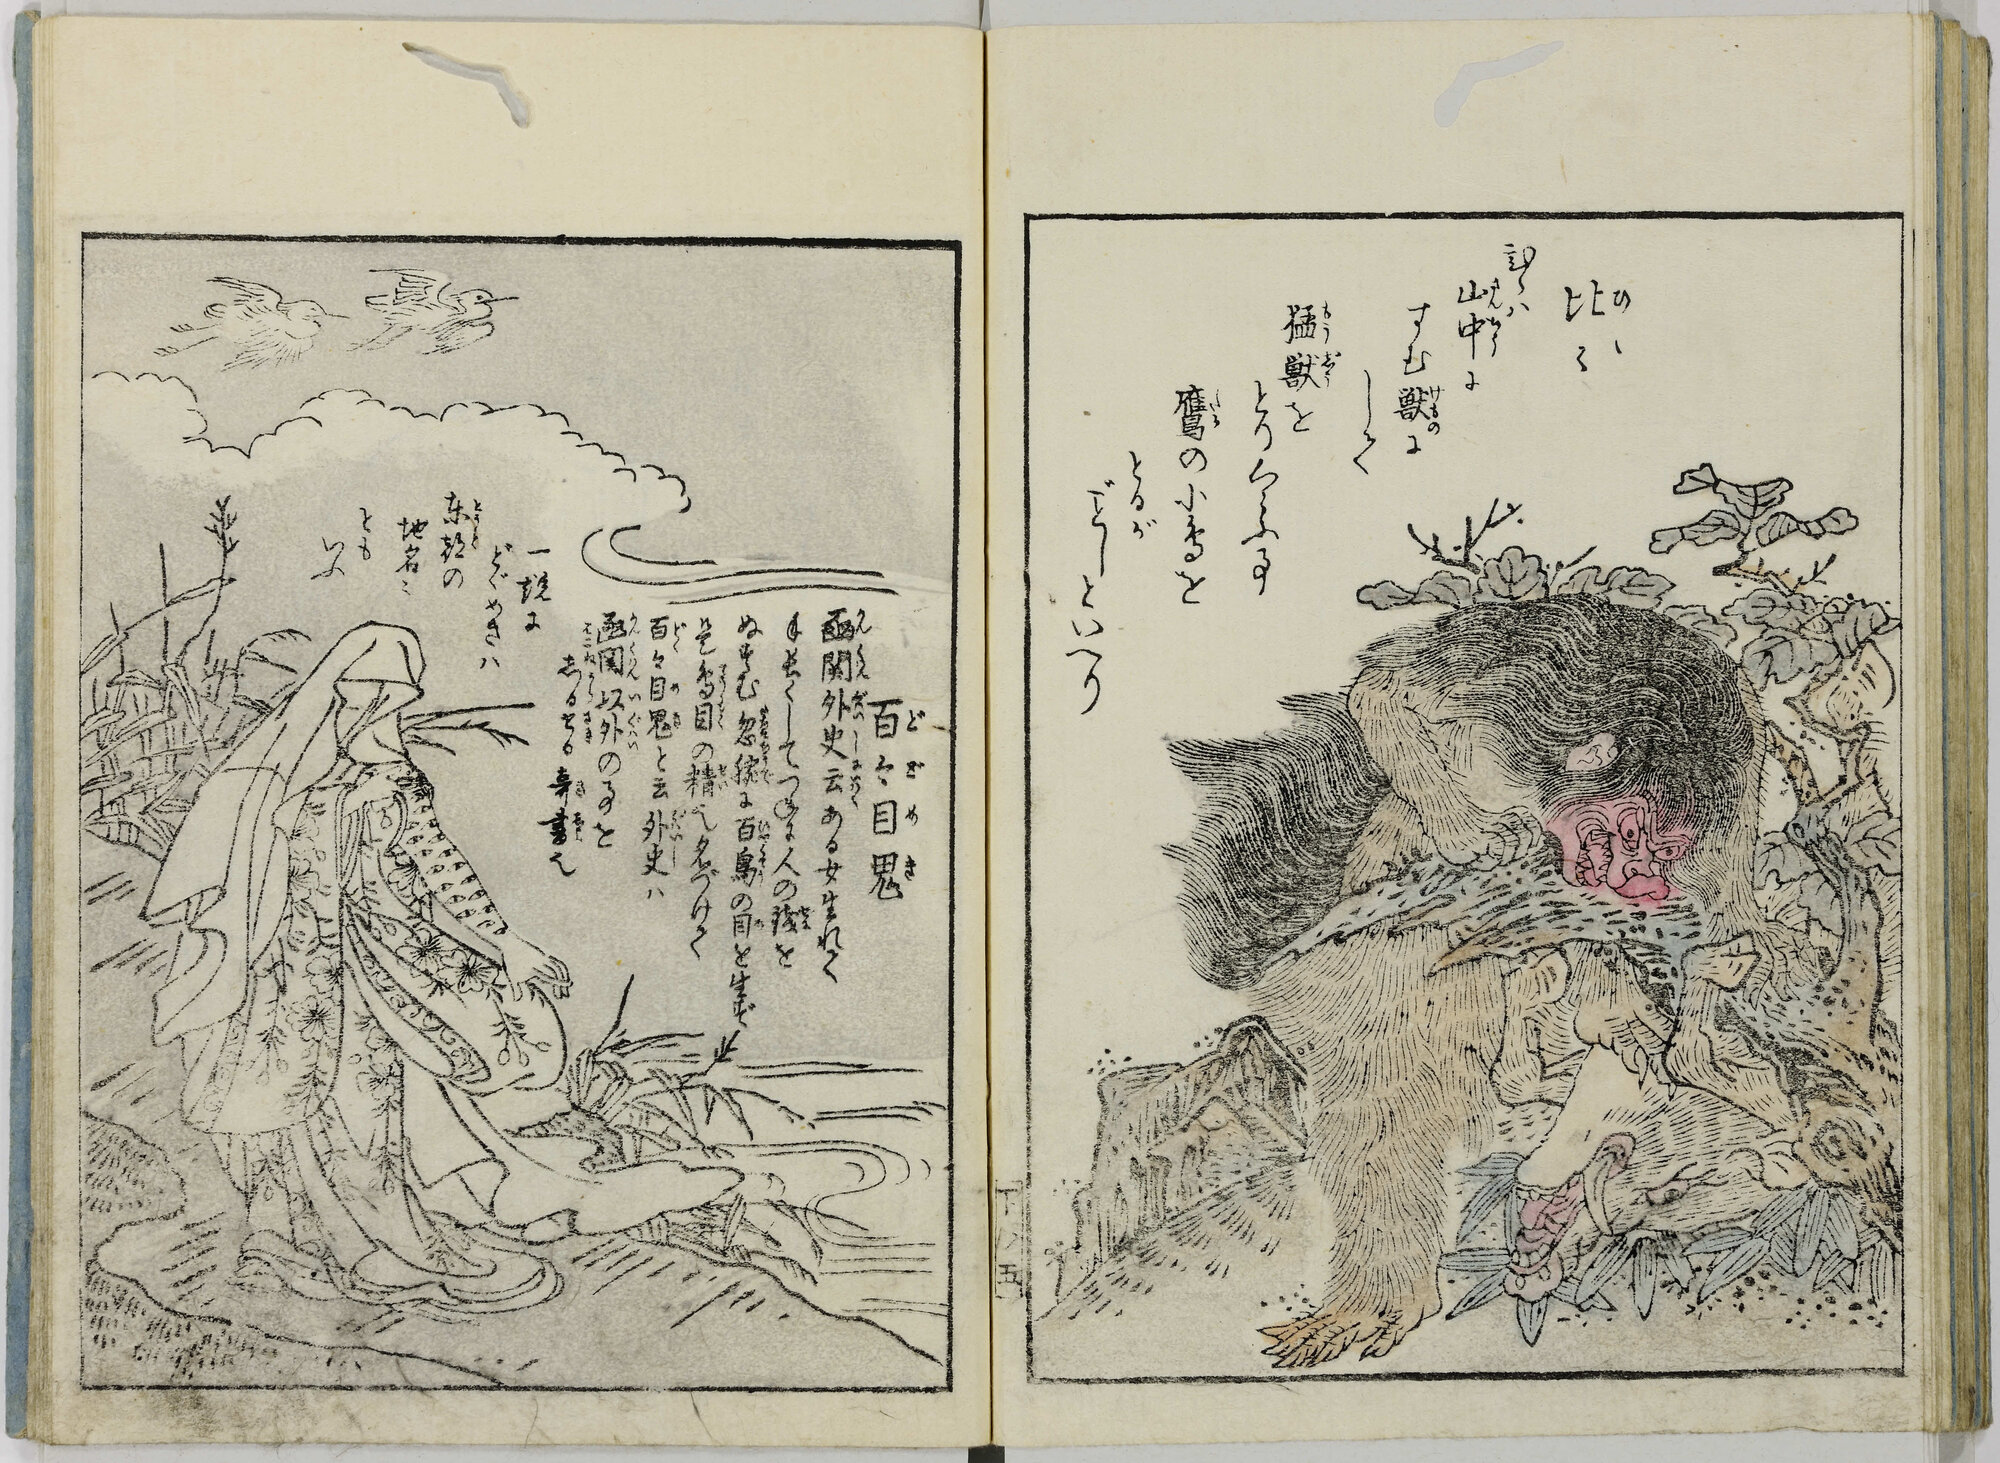 比々
比々ハ
山中に
すむ獣に
して
猛獣を
とりくらふ事
鷹の小鳥を
とるが
ごとしといへり
百々目鬼
函関外史云ある女生れて
手長くしてつねに人の銭を
ぬすむ忽腕に百鳥の目を生ず
是鳥目の精也名づけて
百々目鬼と云外史ハ
函関以外の事を
しるせる奇書也
一説に
どゞめきハ
東都の
地名
とも
いふ